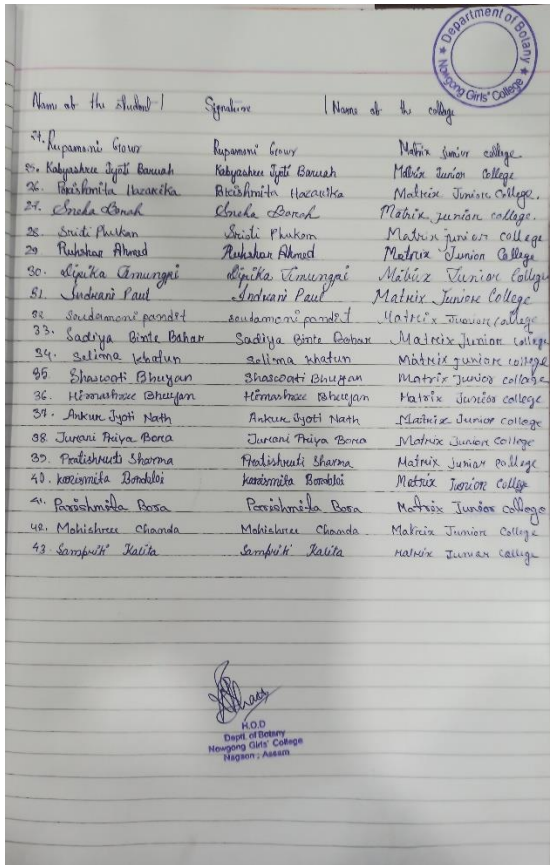 ★ Department of Botany ★ Nowgong Girls' College
Name of the student | Signature | Name of the college
24. Rupamoni Gowr Rupamoni Gowr Matrix Junior college
25. Kabyashree Jyoti Baruah Kabyashree Jyoti Baruah Matrix Junior College
26. Barishmita Hazarika Barishmita Hazarika Matrix Juniore College.
27. Sneha Borah Sneha Borah Matrix junior college.
28. Sristi Phukan Sristi Phukan Matrix junior college
29 Rukshar Ahmed Rukshar Ahmed Matrix Junior College
30. Lipika Timungpi Lipika Timungpi Matrix Junior College
31. Indrani Paul Indrani Paul Matrix Juniore College
32. Soudamoni pandit Soudamoni pandit Matrix Junior College
33. Sadiya Binte Bahar Sadiya Binte Bahar Matrix Junior College
34. Selima khatun Selima khatun Matrix junior college
35. Shaswati Bhuyan Shaswati Bhuyan Matrix Junior college
36. Himashree Bhuyan Himashree Bhuyan Matrix Junior College
37. Ankur Jyoti Nath Ankur Jyoti Nath Matrix Junior college
38. Jurani Priya Bora Jurani Priya Bora Matrix Junior College
39. Pratishruti Sharma Pratishruti Sharma Matrix junior college
40. Karismita Bordoloi Karismita Bordoloi Matrix Junior College
41. Parishmita Bora Parishmita Bora Matrix Junior College
42. Mohishree Chanda Mohishree Chanda Matrix Junior College
43. Sampriti Kalita Sampriti Kalita Matrix Junior College
H.O.D
Deptt. of Botany
Nowgong Girls' College
Nagaon, Assam